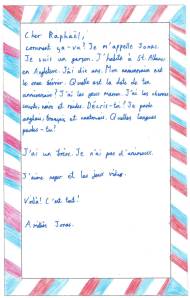 Cher Raphaël,
comment ça-va? Je m'appelle Jonas.
Je suis un garçon. J'habite à St. Albans,
en Angleterre. J'ai dix ans. Mon anniversaire est
le onze février. Quelle est la date de ton
anniversaire? J'ai les yeux marron. J'ai les cheveux
courts, noirs et raides. Décris-toi! Je parle
anglais, français et Quelles langues
parles-tu?
J'ai un frère. Je n'ai pas d'animaux.
J'aime nager et les jeux vidéo.
Voilà! C'est tout!
A bientôt Jonas.